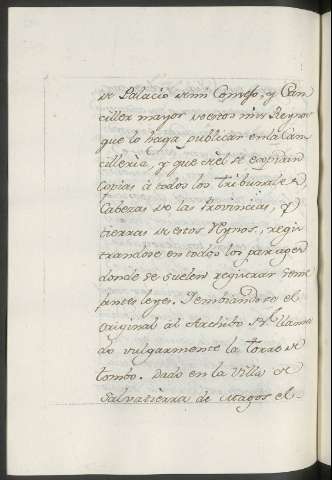 de Palacio de mi Consejo, y Can-
ciller mayor de estos mis Reynos
que lo haga publicar en la Can-
cilleria, y que de el se embian
copias à todos los tribunales,
Cabezas de las Provincias, y
tierras de estos Rynos, regis
trandose en todos los parages
donde se suelen registrar seme
jantes leyes. Iembiandose el
original al Archibo Rl. llama
do vulgarmente la torre de
tombo. Dado en la Villa de
Salvatierra de Magos el-